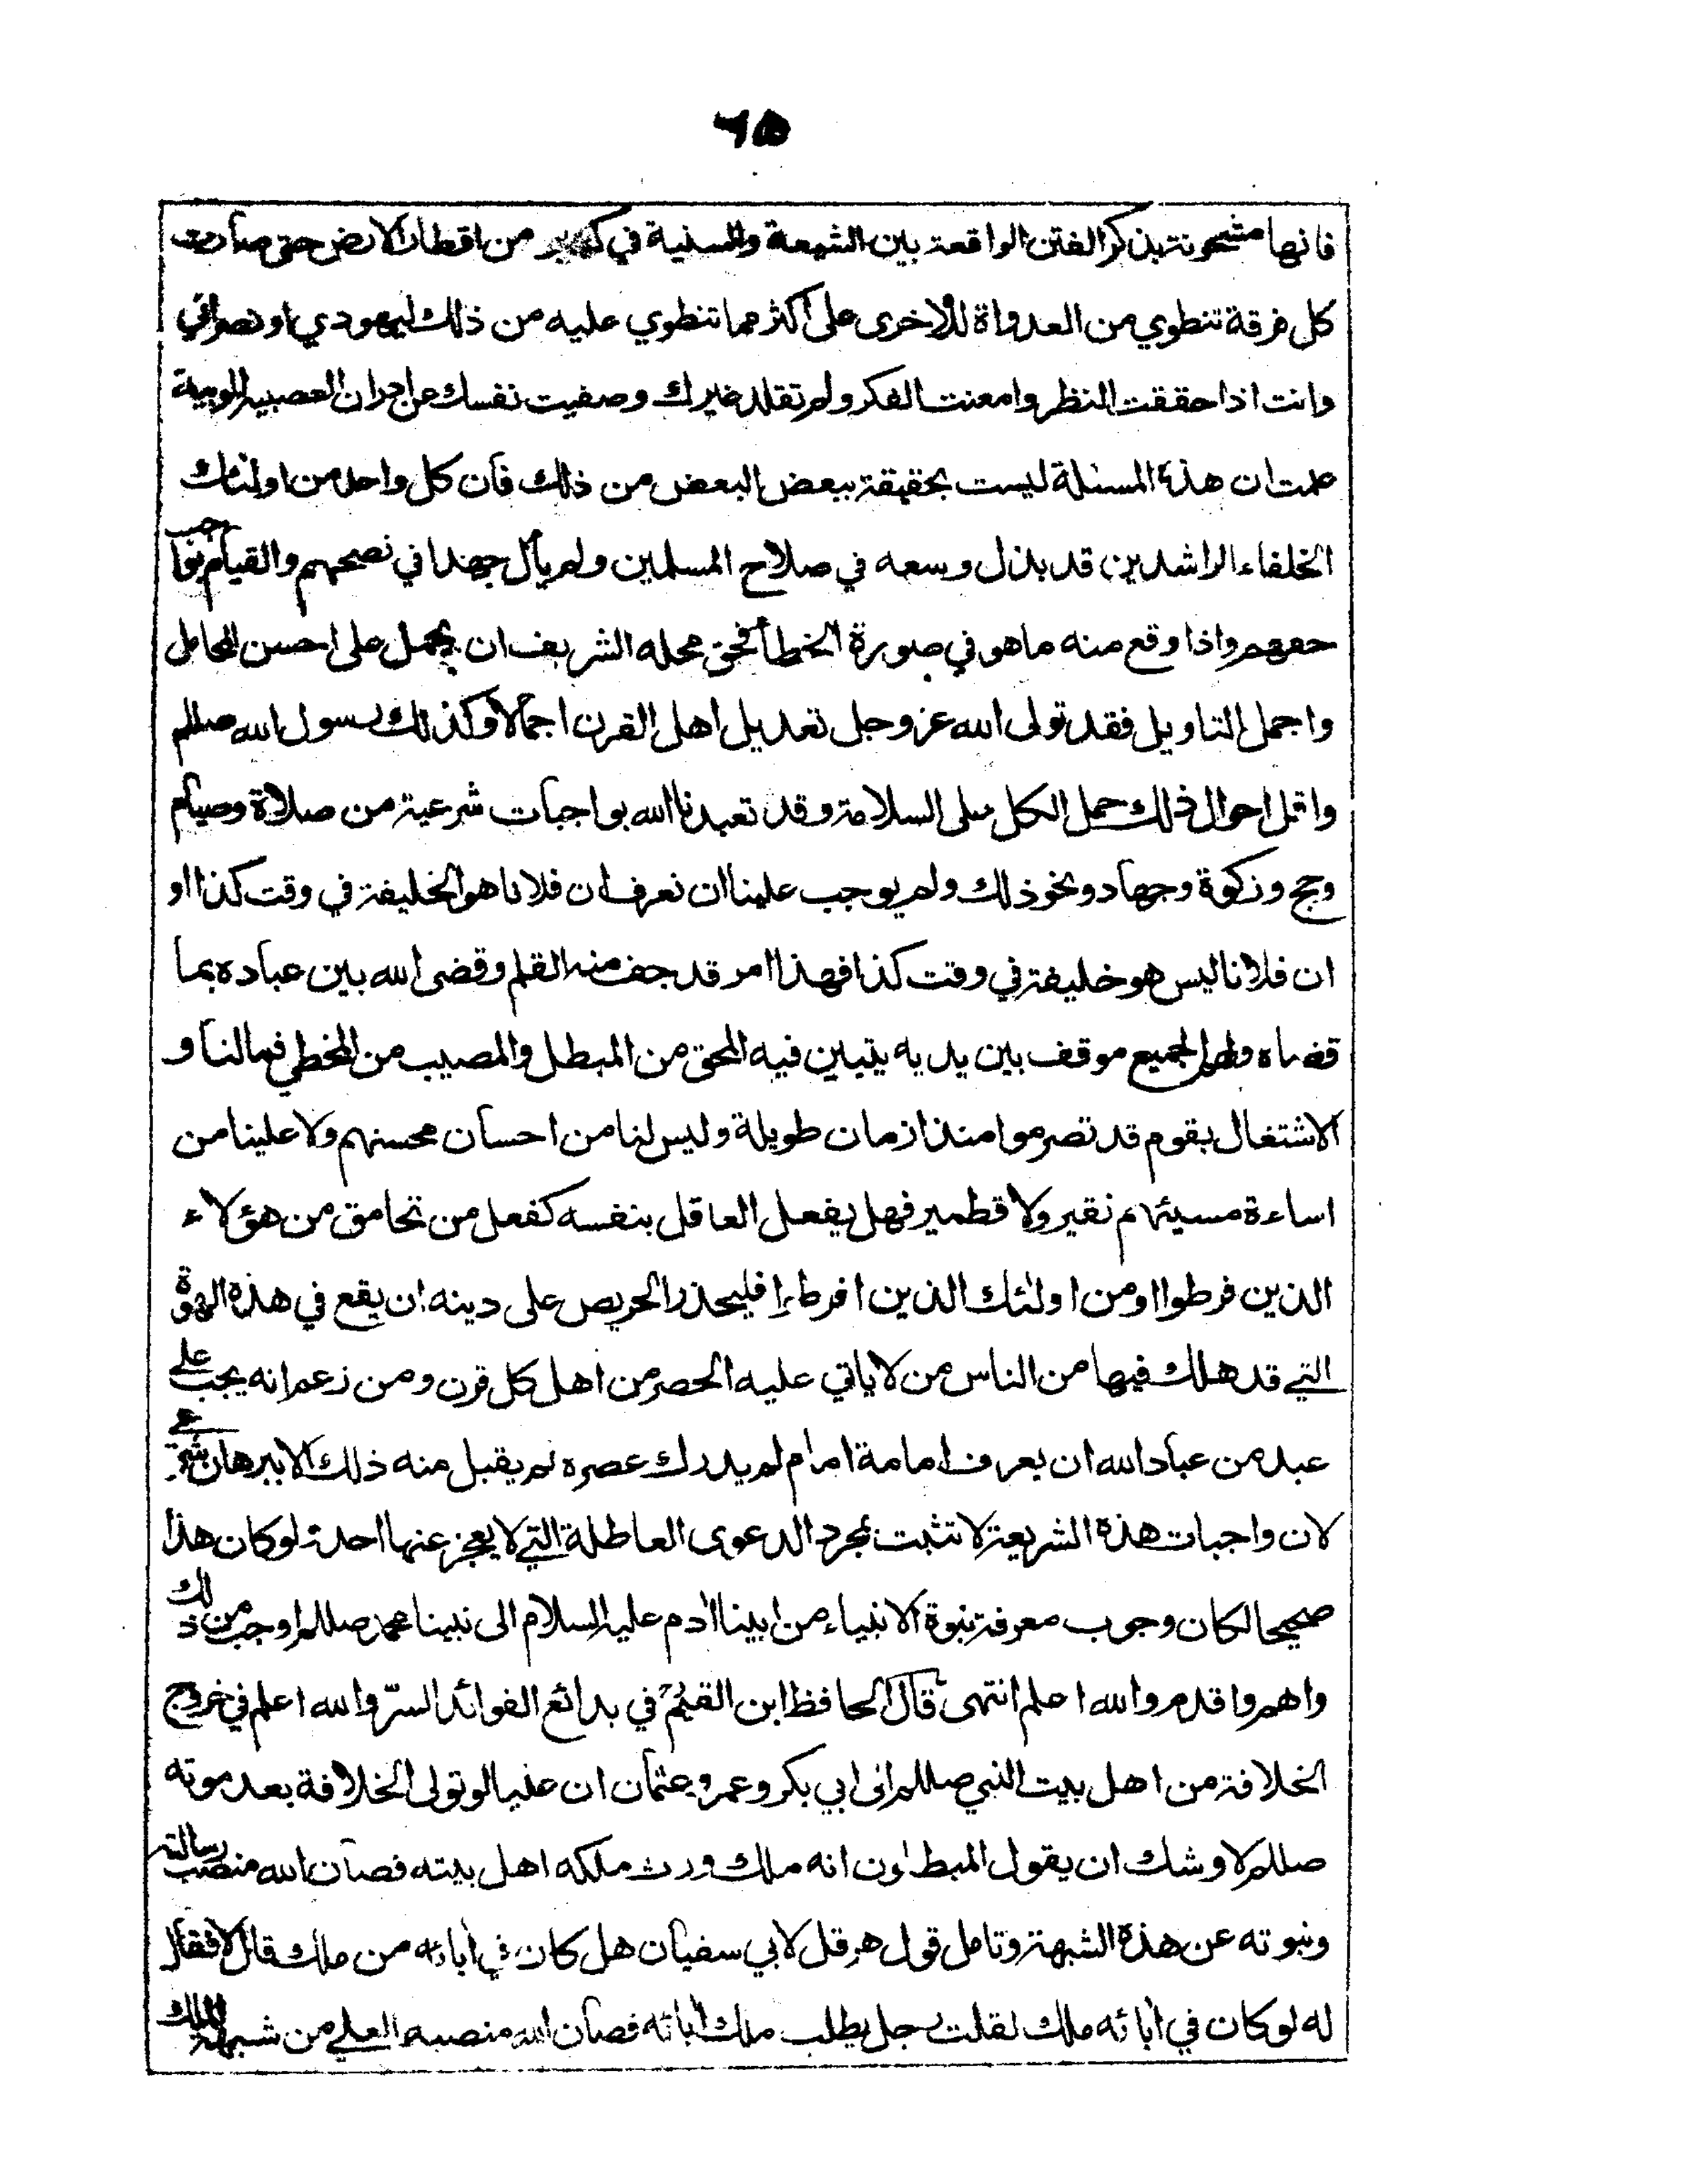 ٦٥
فانها مشحونة بذكر الفتن الواقعة بين الشيعة والسنية في كثير من اقطار الارض حتى صارت
كل فرقة تنطوي من العداوة للاخرى على اكثر مما تنطوي عليه من ذلك ليهودي او نصراني
وانت اذا حققت النظر وامعنت الفكر ولم تقلد غيرك وصفيت نفسك عن ادران العصبية
علمت ان هذه المسئلة ليست بحقيقة ببعض البعض من ذلك فان كل واحد من اولئك
الخلفاء الراشدين قد بذل وسعه في صلاح المسلمين ولم يأل جهدا في نصحهم والقيام بواجب
حقهم واذا وقع منه ما هو في صورة الخطأ فحق محله الشريف ان يحمل على احسن المحامل
واجمل التاويل فقد تولى الله عز وجل تعديل اهل القرن اجمالا وكذلك رسول الله صللم
واقل احوال ذلك حمل الكل على السلامة وقد تعبدنا الله بواجبات شرعية من صلاة وصيام
وحج وزكوة وجهاد ونحو ذلك ولم يوجب علينا ان نعرف ان فلانا هو الخليفة في وقت كذا او
ان فلانا ليس هو خليفة في وقت كذا فهذا امر قد جف منه القلم وقضى الله بين عباده بما
قضاه ولهم الجميع موقف بين يديه يتبين فيه المحق من المبطل والمصيب من المخطي فما لنا و
الاشتغال بقوم قد تصرموا منذ ازمان طويلة وليس لنا من احسان محسنهم ولا علينا من
اساءة مسيئهم نقير ولا قطمير فهل يفعل العاقل بنفسه كفعل من تحامق من هؤلاء
الذين فرطوا او من اولئك الذين افرطوا فليحذر الحريص على دينه ان يقع في هذه الهوة
التي قد هلك فيها من الناس من لا ياتي عليه الحصر من اهل كل قرن ومن زعم انه يجب على
عبد من عباد الله ان يعرف امامة امام لم يدرك عصره لم يقبل منه ذلك الا ببرهان شرعي
لان واجبات هذه الشريعة لا تثبت بمجرد الدعوى العاطلة التي لا يعجز عنها احد ولو كان هذا
صحيحا لكان وجوب معرفة نبوة الانبياء من ابينا ادم عليه السلام الى نبينا محمد صللم اوجب من ذلك
واهم واقدم والله اعلم انتهى قال الحافظ ابن القيم في بدائع الفوائد السرّ والله اعلم في خروج
الخلافة من اهل بيت النبي صللم الى ابي بكر وعمر وعثمان ان عليا لو تولى الخلافة بعد موته
صللم لاوشك ان يقول المبطلون انه ملك ورث ملكه اهل بيته فصان الله منصب رسالته
ونبوته عن هذه الشبهة وتامل قول هرقل لابي سفيان هل كان في ابائه من ملك قال لا فقال
له لو كان في ابائه ملك لقلت رجل يطلب ملك ابائه فصان الله منصبه العلي من شبهة الملك